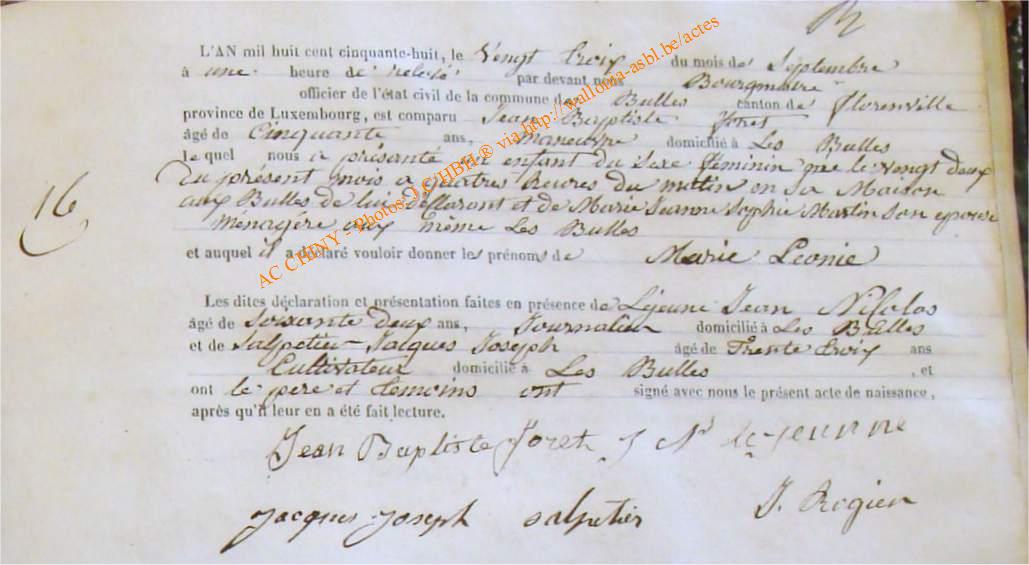 L'AN mil huit cent cinquante-huit, le Vengt troix du mois de Séptembre
à une heure de rélévé par devant nous Bourgmaitre
officier de l'état civil de la commune des Bulles canton de florenville
province de Luxembourg, est comparu Jean Baptiste foret
âgé de Cinquante ans, manœuvre domicilié à Les Bulles
le quel nous a présanté un enfant du sexe féminin née le vengt deux
du présent mois a quatres heures du mattin en sa Maison
aux Bulles de lui déllarant et de Marie Jeanne Sophie Martin son epouse
ménagére aux même Les Bulles
16
et auquel il a déclaré vouloir donner les prénoms de Marie Leonie
Les dites déclaration et présentation faites en présence de Léjeune Jean Nilolas
âgé de Soixante deux ans, Journalier domicilié à Les Bulles
et de Salpetier Jacques Joseph âgé de Trente troix ans
Cultivateur domicilié à Les Bulles , et
ont le pere et temoins ont signé avec nous le présent acte de naissance,
après qu'il leur en a été fait lecture.
Jean Baptiste foret J Ns le jeunne
Jacques joseph salpetier J. Rogier
AC CHINY - Photos: J.CHBH® via http://wallonia-asbl.be/actes